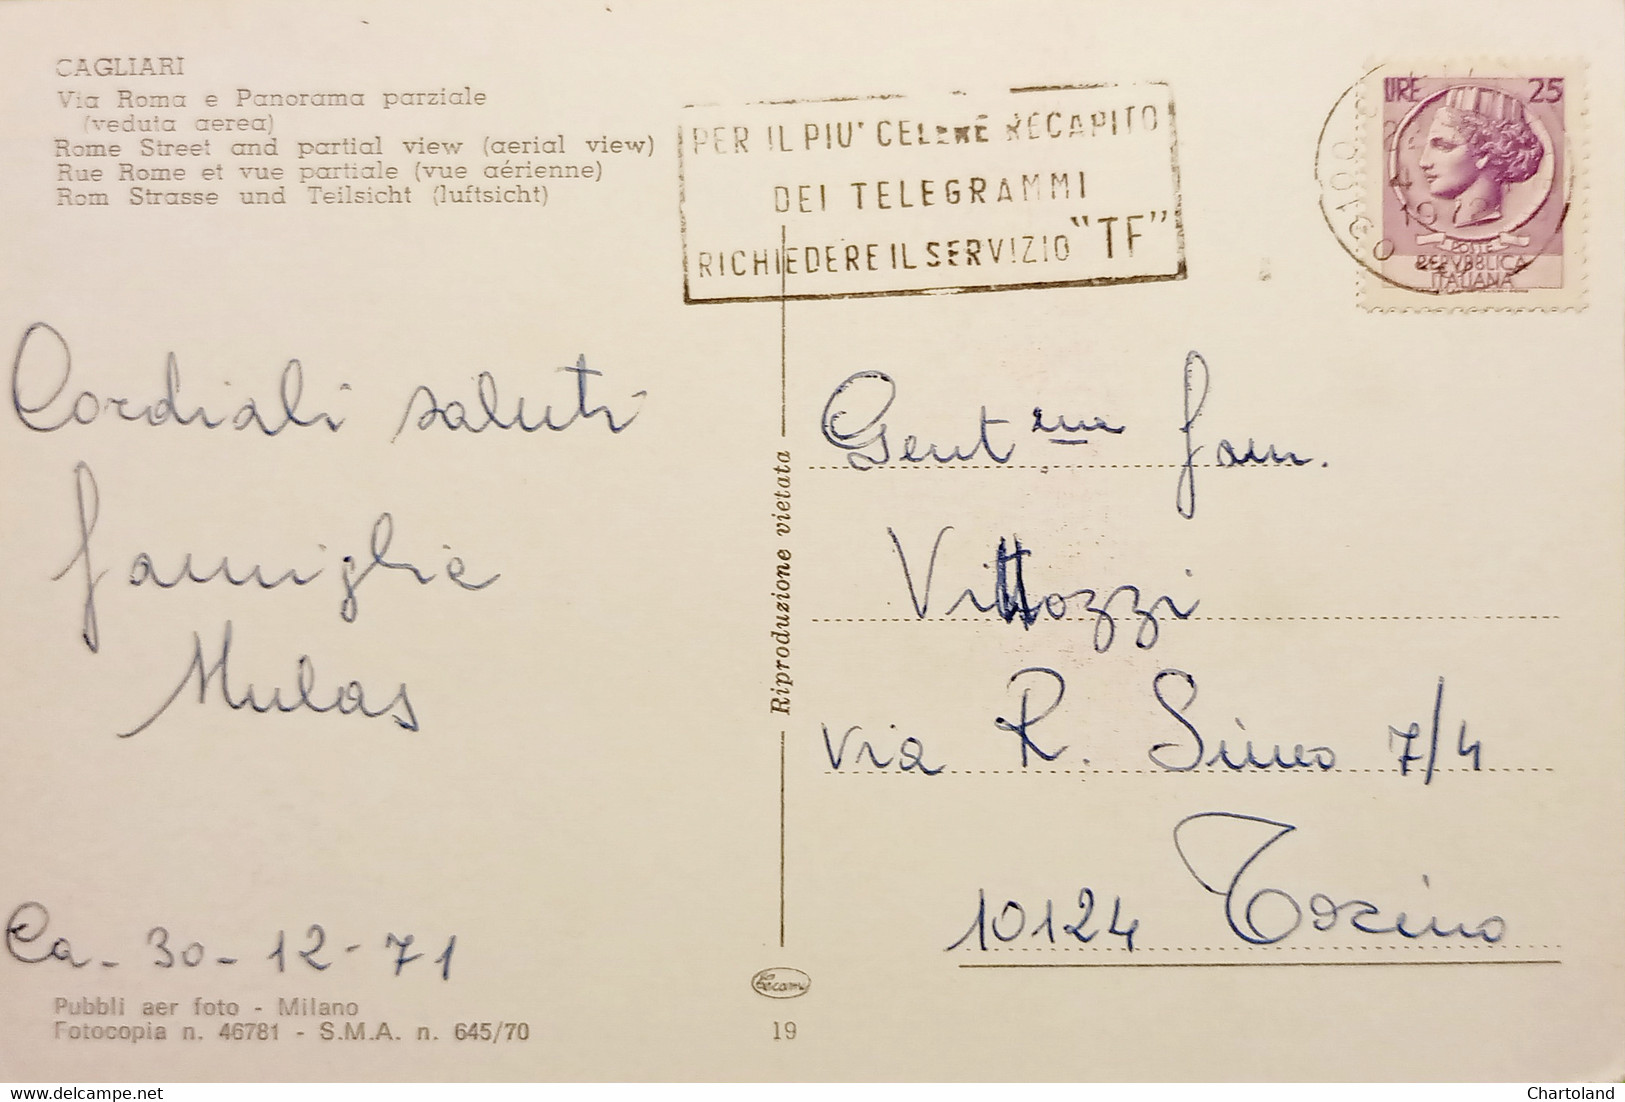 CAGLIARI
Via Roma e Panorama parziale
(veduta aerea)
Rome Street and partial view (aerial view)
Rue Rome et vue partiale (vue aérienne)
Rom Strasse und Teilsicht (luftsicht)
PER IL PIU' CELERE RECAPITO
DEI TELEGRAMMI
RICHIEDERE IL SERVIZIO "TF"
LIRE 25
POSTE
REPVBBLICA
ITALIANA
09100
4
1972
Cordiali saluti
famiglia
Mulas
Ca - 30 - 12 - 71
Pubbli aer foto - Milano
Fotocopia n. 46781 - S.M.A. n. 645/70
Riproduzione vietata
19
Gent.ma fam.
Vittozzi
Via R. Sineo 7/4
10124 Torino
delcampe.net
Chartoland